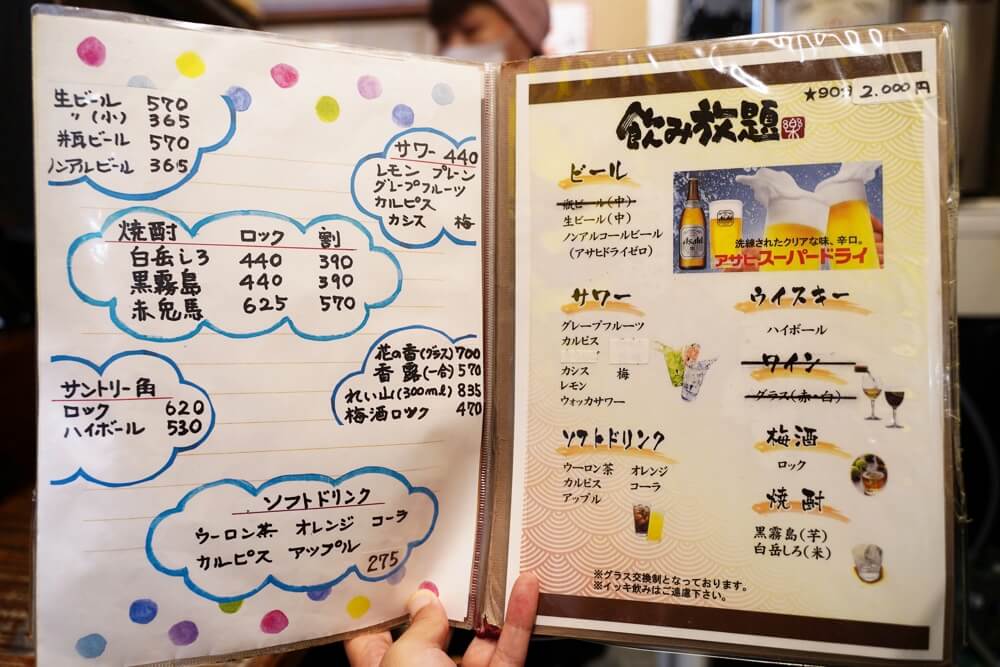 生ビール 570
〃(小) 365
瓶ビール 570
ノンアルビール 365
サワー 440
レモン プレーン
グレープフルーツ
カルピス
カシス 梅
焼酎 ロック 割
白岳しろ 440 390
黒霧島 440 390
赤兎馬 625 570
サントリー角
ロック 620
ハイボール 530
花の香(グラス) 700
香露(一合) 570
れい山(300ml) 835
梅酒ロック 470
ソフトドリンク
ウーロン茶 オレンジ コーラ
カルピス アップル 275
★90分 2.000円
飲み放題 楽
ビール
瓶ビール(中)
生ビール(中)
ノンアルコールビール
(アサヒドライゼロ)
Asahi
洗練されたクリアな味、辛口。
アサヒスーパードライ
サワー
グレープフルーツ
カルピス
カシス 梅
レモン
ウォッカサワー
ソフトドリンク
ウーロン茶 オレンジ
カルピス コーラ
アップル
ウイスキー
ハイボール
ワイン
グラス(赤・白)
梅酒
ロック
焼酎
黒霧島(芋)
白岳しろ(米)
※グラス交換制となっております。
※イッキ飲みはご遠慮下さい。